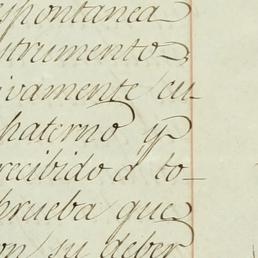 espontanea
strumento
ivamente cu-
paterno y
recibido a to-
prueba que
on su deber